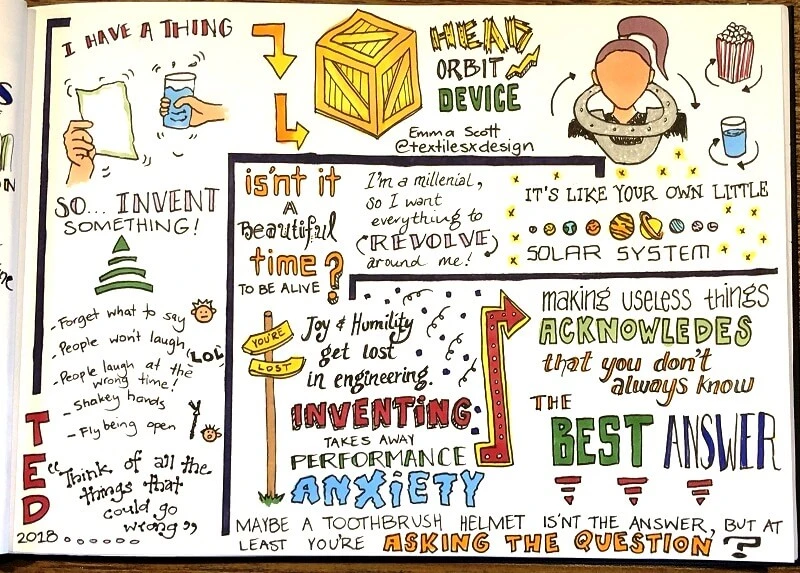 I HAVE A THING
HEAD
ORBIT
DEVICE
Emma Scott
@textilesxdesign
SO... INVENT
SOMETHING!
- Forget what to say
- People won't laugh
- People laugh at the
wrong time!
LOL
- Shakey hands
- Fly being open
TED
"Think of all the
things that
could go
wrong"
2018......
isn't it
A
Beautiful
time
TO BE ALIVE?
I'm a millenial,
so I want
everything to
REVOLVE
around me!
IT'S LIKE YOUR OWN LITTLE
SOLAR SYSTEM
YOU'RE
LOST
Joy & Humility
get lost
in engineering.
INVENTING
TAKES AWAY
PERFORMANCE
ANXIETY
making useless things
ACKNOWLEDES
that you don't
always know
THE
BEST ANSWER
MAYBE A TOOTHBRUSH HELMET IS'NT THE ANSWER, BUT AT
LEAST YOU'RE ASKING THE QUESTION?